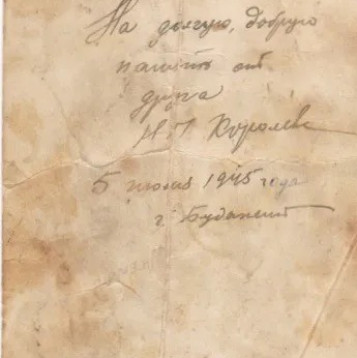 На долгую, добрую
память от
друга
Королев
5 июля 1945 года
г. Будапешт